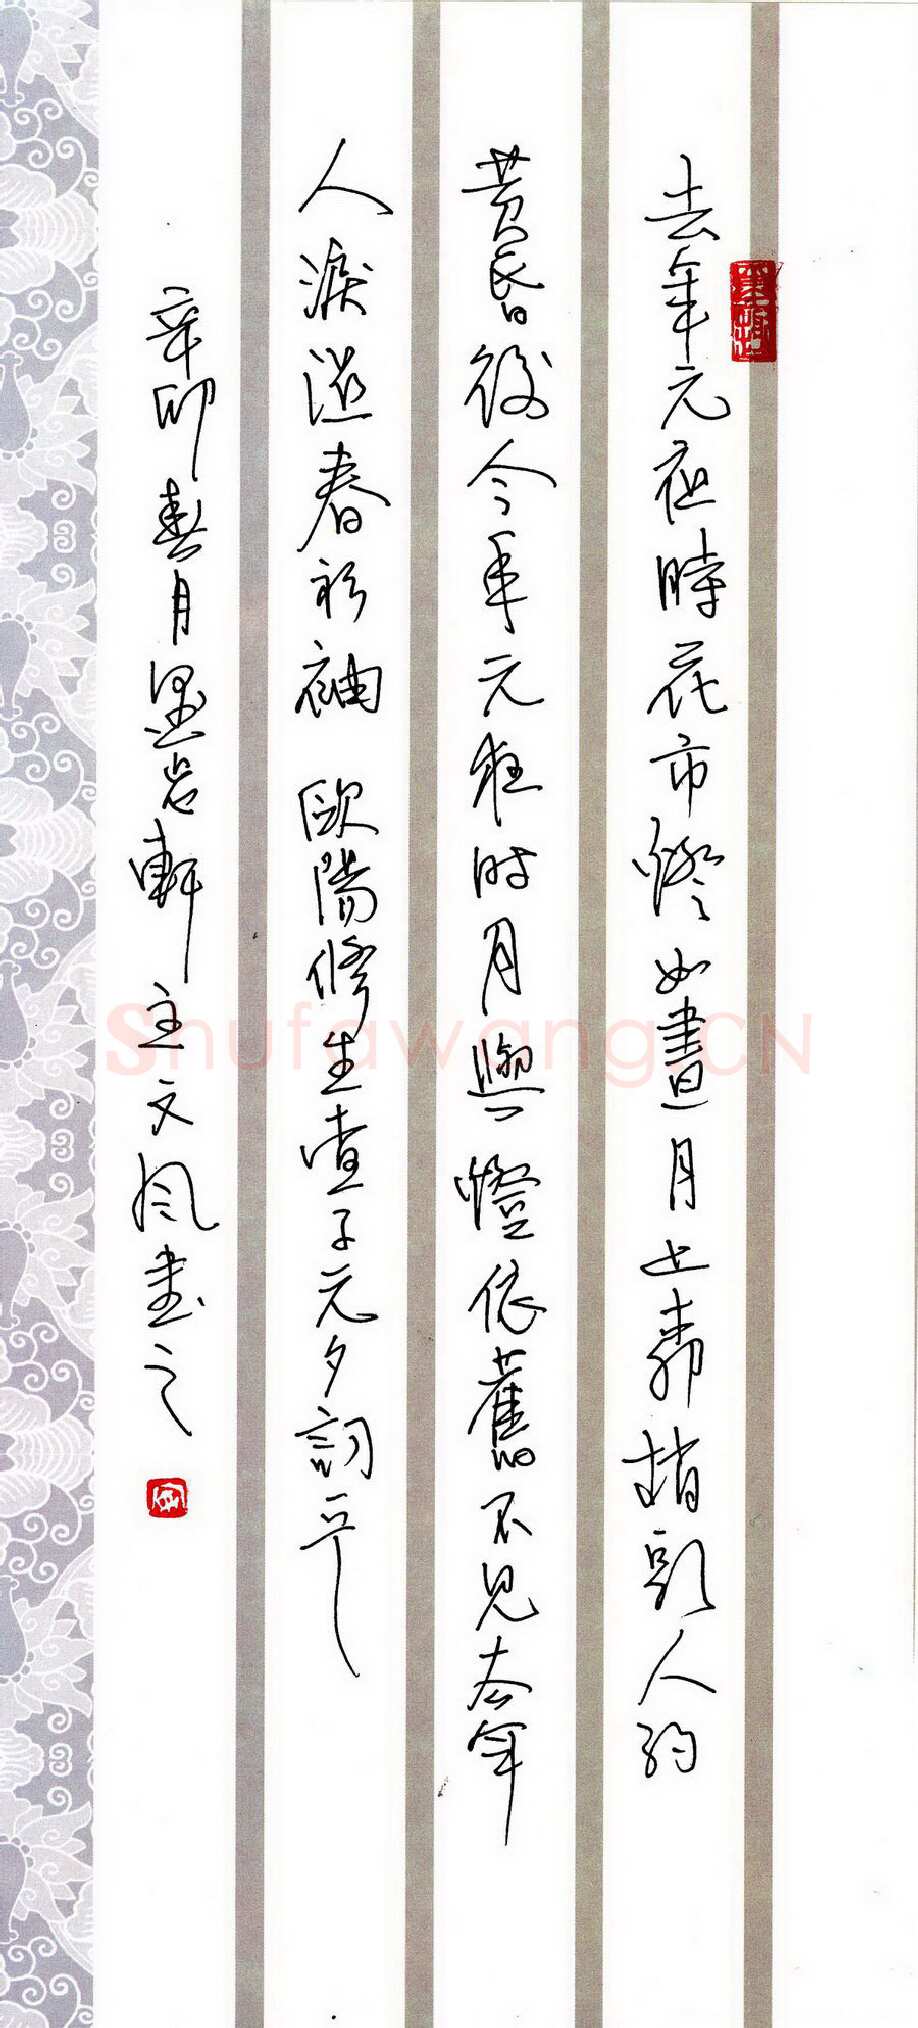 去年元夜時花市燈如晝月上柳梢頭人約
黃昏後今年元夜时月與燈依舊不見去年
人淚溼春衫袖 歐陽修生查子元夕詞平
辛卯春月墨岩軒主文风書之
ShufaWang.CN